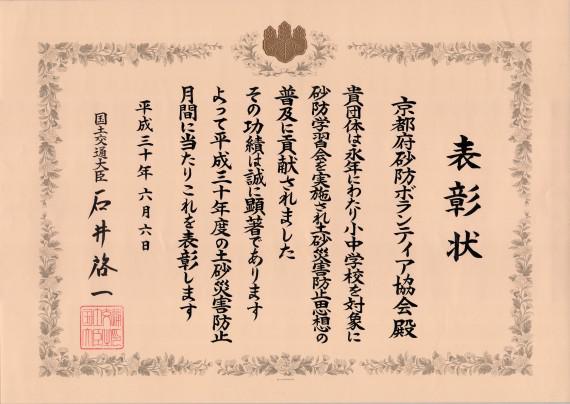 表彰状
京都府砂防ボランティア協会殿
貴団体は永年にわたり小中学校を対象に
砂防学習会を実施され土砂災害防止思想の
普及に貢献されました
その功績は誠に顕著であります
よって平成三十年度の土砂災害防止
月間に当たりこれを表彰します
平成三十年六月六日
国土交通大臣 石井啓一